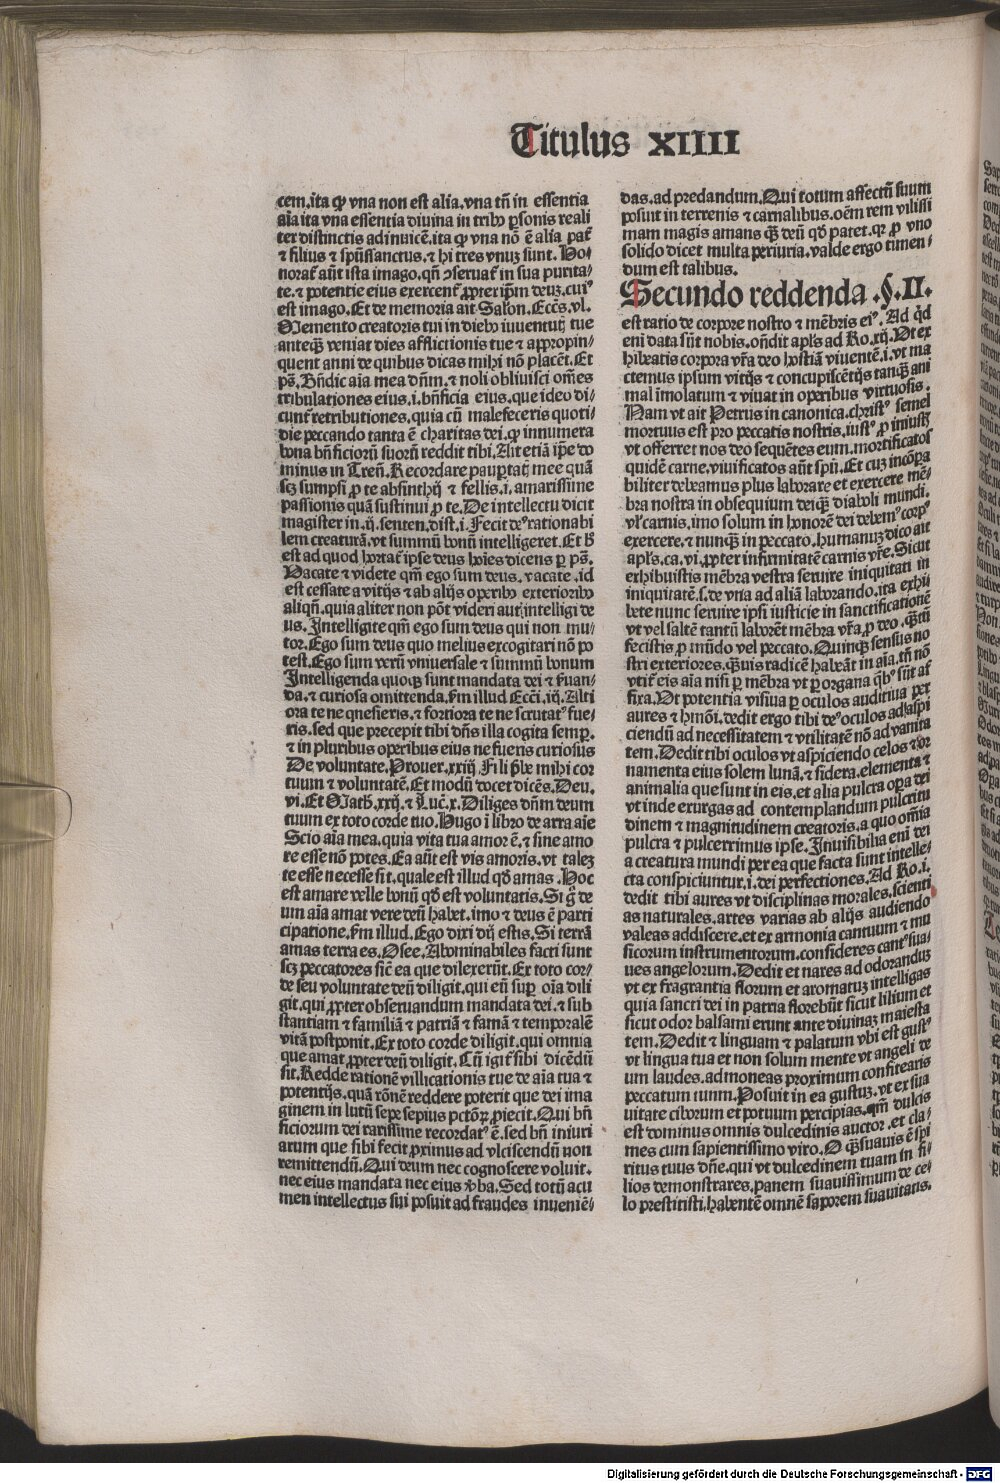 Titulus XIIII
cem, ita ꝙ vna non est alia, vna tñ in essentia
aīa ita vna essentia diuina in tribꝰ ꝑsonis reali
ter distinctis adinuicē, ita ꝙ vna nō ē alia pat̄
⁊ filius ⁊ spūssanctus, ⁊ hi tres vnuꝫ sunt. Ho⸗
norat̄ aūt ista imago, qñ ꝯseruat̄ in sua purita⸗
te, ⁊ potentie eius exercent̄ ꝓpter ip̄m deuꝫ, cuiꝰ
est imago. Et de memoria ait Salon. Eccēs. vl.
Memento creatoris tui in diebꝰ iuuentutꝭ tue
anteqꝫ veniat dies afflictionis tue ⁊ appropin⸗
quent anni de quibus dicas mihi nō placēt. Et
pṡ. Bn̄dic aīa mea dn̄m, ⁊ noli obliuisci om̄es
tribulationes eius, i. bn̄ficia eius, que ideo di⸗
cunt̄ retributiones, quia cū malefeceris quoti⸗
die peccando tanta ē charitas dei, ꝙ innumera
bona bn̄ficiorū suorū reddit tibi. Ait etiā ip̄e do
minus in Tren̄. Recordare paup̱tatꝭ mee quā
scꝫ sumpsi ꝓ te absinthij ⁊ fellis, i. amarissime
passionis quā sustinui ꝓ te. De intellectu dicit
magister in .ij. senten. dist. i. Fecit deꝰ rationabi
lem creaturā, vt summū bonū intelligeret. Et h̄
est ad quod hortat̄ ipse deus hoīes dicens p̱ pṡ.
Vacate ⁊ videte qm̄ ego sum deus, vacate, id
est cessate a vitijs ⁊ ab alijs operibꝰ exterioribꝰ
aliqn̄, quia aliter non pōt videri aut intelligi de
us. Intelligite qm̄ ego sum deus qui non mu⸗
tor. Ego sum deus quo melius excogitari nō po
test. Ego sum verū vniuersale ⁊ summū bonum
Intelligenda quoqꝫ sunt mandata dei ⁊ s̄uan⸗
da, ⁊ curiosa omittenda, s̄m illud Eccī. iij. Alti
ora te ne quesieris, ⁊ fortiora te ne scrutatꝰ fue⸗
ris, sed que precepit tibi dn̄s illa cogita semp̱.
⁊ in pluribus operibus eius ne fueris curiosus
De voluntate. Prouer. xxiij. Fili p̄be mihi cor
tuum ⁊ voluntatē. Et modū docet dicēs. Deu.
vi. Et Math. xxij. ⁊ Luc̄. x. Diliges dn̄m deum
tuum ex toto corde tuo. Hugo ī libro de arra aīe
Scio aīa mea, quia vita tua amor ē, ⁊ sine amo
re esse nō potes. Ea aūt est vis amoris, vt taleꝫ
te esse necesse sit, quale est illud qđ amas. Hoc
est amare velle bonū qđ est voluntatis. Si g̊ de
um aīa amat vere deū habet, imo ⁊ deus ē parti
cipatione, s̄m illud. Ego dixi dij estis. Si terrā
amas terra es. Osee. Abominabiles facti sunt
scꝫ peccatores sic̄ ea que dilexerūt. Ex toto cor⸗
de seu voluntate deū diligit, qui eū sup̱ oīa dili
git, qui ꝓpter obseruandum mandata dei, ⁊ sub
stantiam ⁊ familiā ⁊ patriā ⁊ famā ⁊ temporalē
vitā postponit. Ex toto corde diligit, qui omnia
que amat ꝓpter deū diligit. Cū igit̄ sibi dicēdū
sit. Redde rationē villicationis tue de aīa tua ⁊
potentijs, quā rōnē reddere poterit que dei ima
ginem in lutū sepe sepius pctōꝝ ꝓiecit. Qui bn̄
ficiorum dei rarissime recordatꝰ ē, sed bn̄ iniuri
arum que sibi fecit proximus ad vlciscendū non
remittendū. Qui deum nec cognoscere voluit,
nec eius mandata nec eius v̓ba. Sed totū acu
men intellectus sui posuit ad fraudes inueniē⸗
das, ad predandum. Qui totum affectū suum
posuit in terrenis ⁊ carnalibus, oēm rem vilissi
mam magis amans qꝫ deū qđ patet, qr ꝓ vno
solido dicet multa periuria, valde ergo timen⸗
dum est talibus.
Secundo reddenda .§. II.
est ratio de corpore nostro ⁊ mēbris eiꝰ. Ad qđ
eni data sūt nobis, on̄dit apl̄s ad Ro. xij. Vt ex
hibeatis corpora vr̄a deo hostiā viuentē, i. vt ma
ctemus ipsum vitijs ⁊ concupiscētijs tanqꝫ ani
mal imolatum ⁊ viuat in operibus virtuosis.
Nam vt ait Petrus in canonica, christꝰ semel
mortuus est pro peccatis nostris, iustꝰ ꝓ iniustꝭ
vt offerret nos deo sequētes eum, mortificatos
quidē carne, viuificatos aūt spū. Et cuꝫ incōpa
biliter debeamus plus laborare et exercere mē⸗
bra nostra in obsequium dei qꝫ diaboli mundi,
vl̓ carnis, imo solum in honorē dei debemꝰ corpꝰ
exercere, ⁊ nunqꝫ in peccato, humanuꝫ dico ait
apl̄s, ca. vi. ꝓpter infirmitatē carnis vr̄e. Sicut
exhibuistis mēbra vestra seruire iniquitati in
iniquitatē, s. de vna ad aliā laborando, ita exhi
bete nunc seruire ipsi iusticie in sanctificationē
vt vel saltē tantū laborēt mēbra vr̄a ꝓ deo, qꝫtū
fecistis ꝓ mūdo vel peccato. Quinqꝫ sensus no
stri exteriores, qꝫuis radicē habeāt in aīa, tn̄ nō
vtit̄ eis aīa nisi p̱ mēbra vt p̱ organa qbꝰ sūt af
fixa. Vt potentia visiua p̱ oculos auditiua per
aures ⁊ hmōi, dedit ergo tibi deꝰ oculos ad aspi
ciendū ad necessitatem ⁊ vtilitatē nō ad vanita
tem. Dedit tibi oculos vt aspiciendo celos ⁊ or
namenta eius solem lunā, ⁊ sidera, elementa ⁊
animalia que sunt in eis, et alia pulcra opa̱ dei
vt inde exurgas ad contemplandum pulcritu
dinem ⁊ magnitudinem creatoris, a quo om̄ia
pulcra ⁊ pulcerrimus ipse. Inuisibilia eni dei
a creatura mundi per ea que facta sunt intelle⸗
cta conspiciuntur, i. dei perfectiones. Ad Ro. i.
dedit tibi aures vt disciplinas morales, scienti
as naturales, artes varias ab alijs audiendo
valeas addiscere, et ex armonia cantuum ⁊ mu
sicorum instrumentorum, consideres cantꝰ sua⸗
ues angelorum. Dedit et nares ad odoranduꝫ
vt ex fragrantia florum et aromatuꝫ intelligas
quia sancti dei in patria florebūt sicut lilium et
sicut odor balsami erunt ante diuinaꝫ maiesta
tem. Dedit ⁊ linguam ⁊ palatum vbi est gustꝰ
vt lingua tua et non solum mente vt angeli de
um laudes, admoneas proximum confitearis
peccatum tuum. Posuit in ea gustuꝫ, vt ex sua
uitate ciborum et potuum percipias, qm̄ dulcis
est dominus omnis dulcedinis auctor, et cla⸗
mes cum sapientissimo viro. O qꝫ suauis ē spi
ritus tuus dn̄e, qui vt dulcedinem tuam in fi⸗
lios demonstrares, panem suauissimum de ce⸗
lo prestitisti, habentē omnē saporem suauitatis.
Digitalisierung gefördert durch die Deutsche Forschungsgemeinschaft - DFG